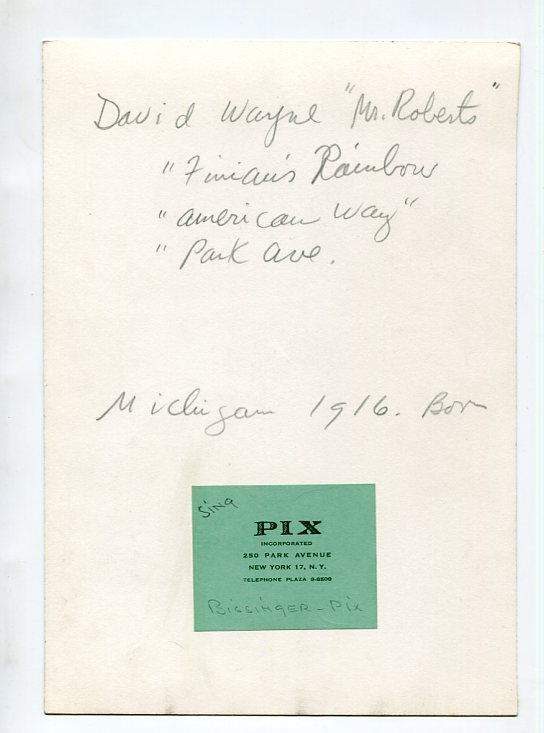 David Wayne "Mr. Roberts"
"Finian's Rainbow
"American Way"
"Park Ave.
Michigan 1916. Born
Sing
PIX
INCORPORATED
250 PARK AVENUE
NEW YORK 17, N. Y.
TELEPHONE PLAZA 9-6500
BISSINGER-PIX